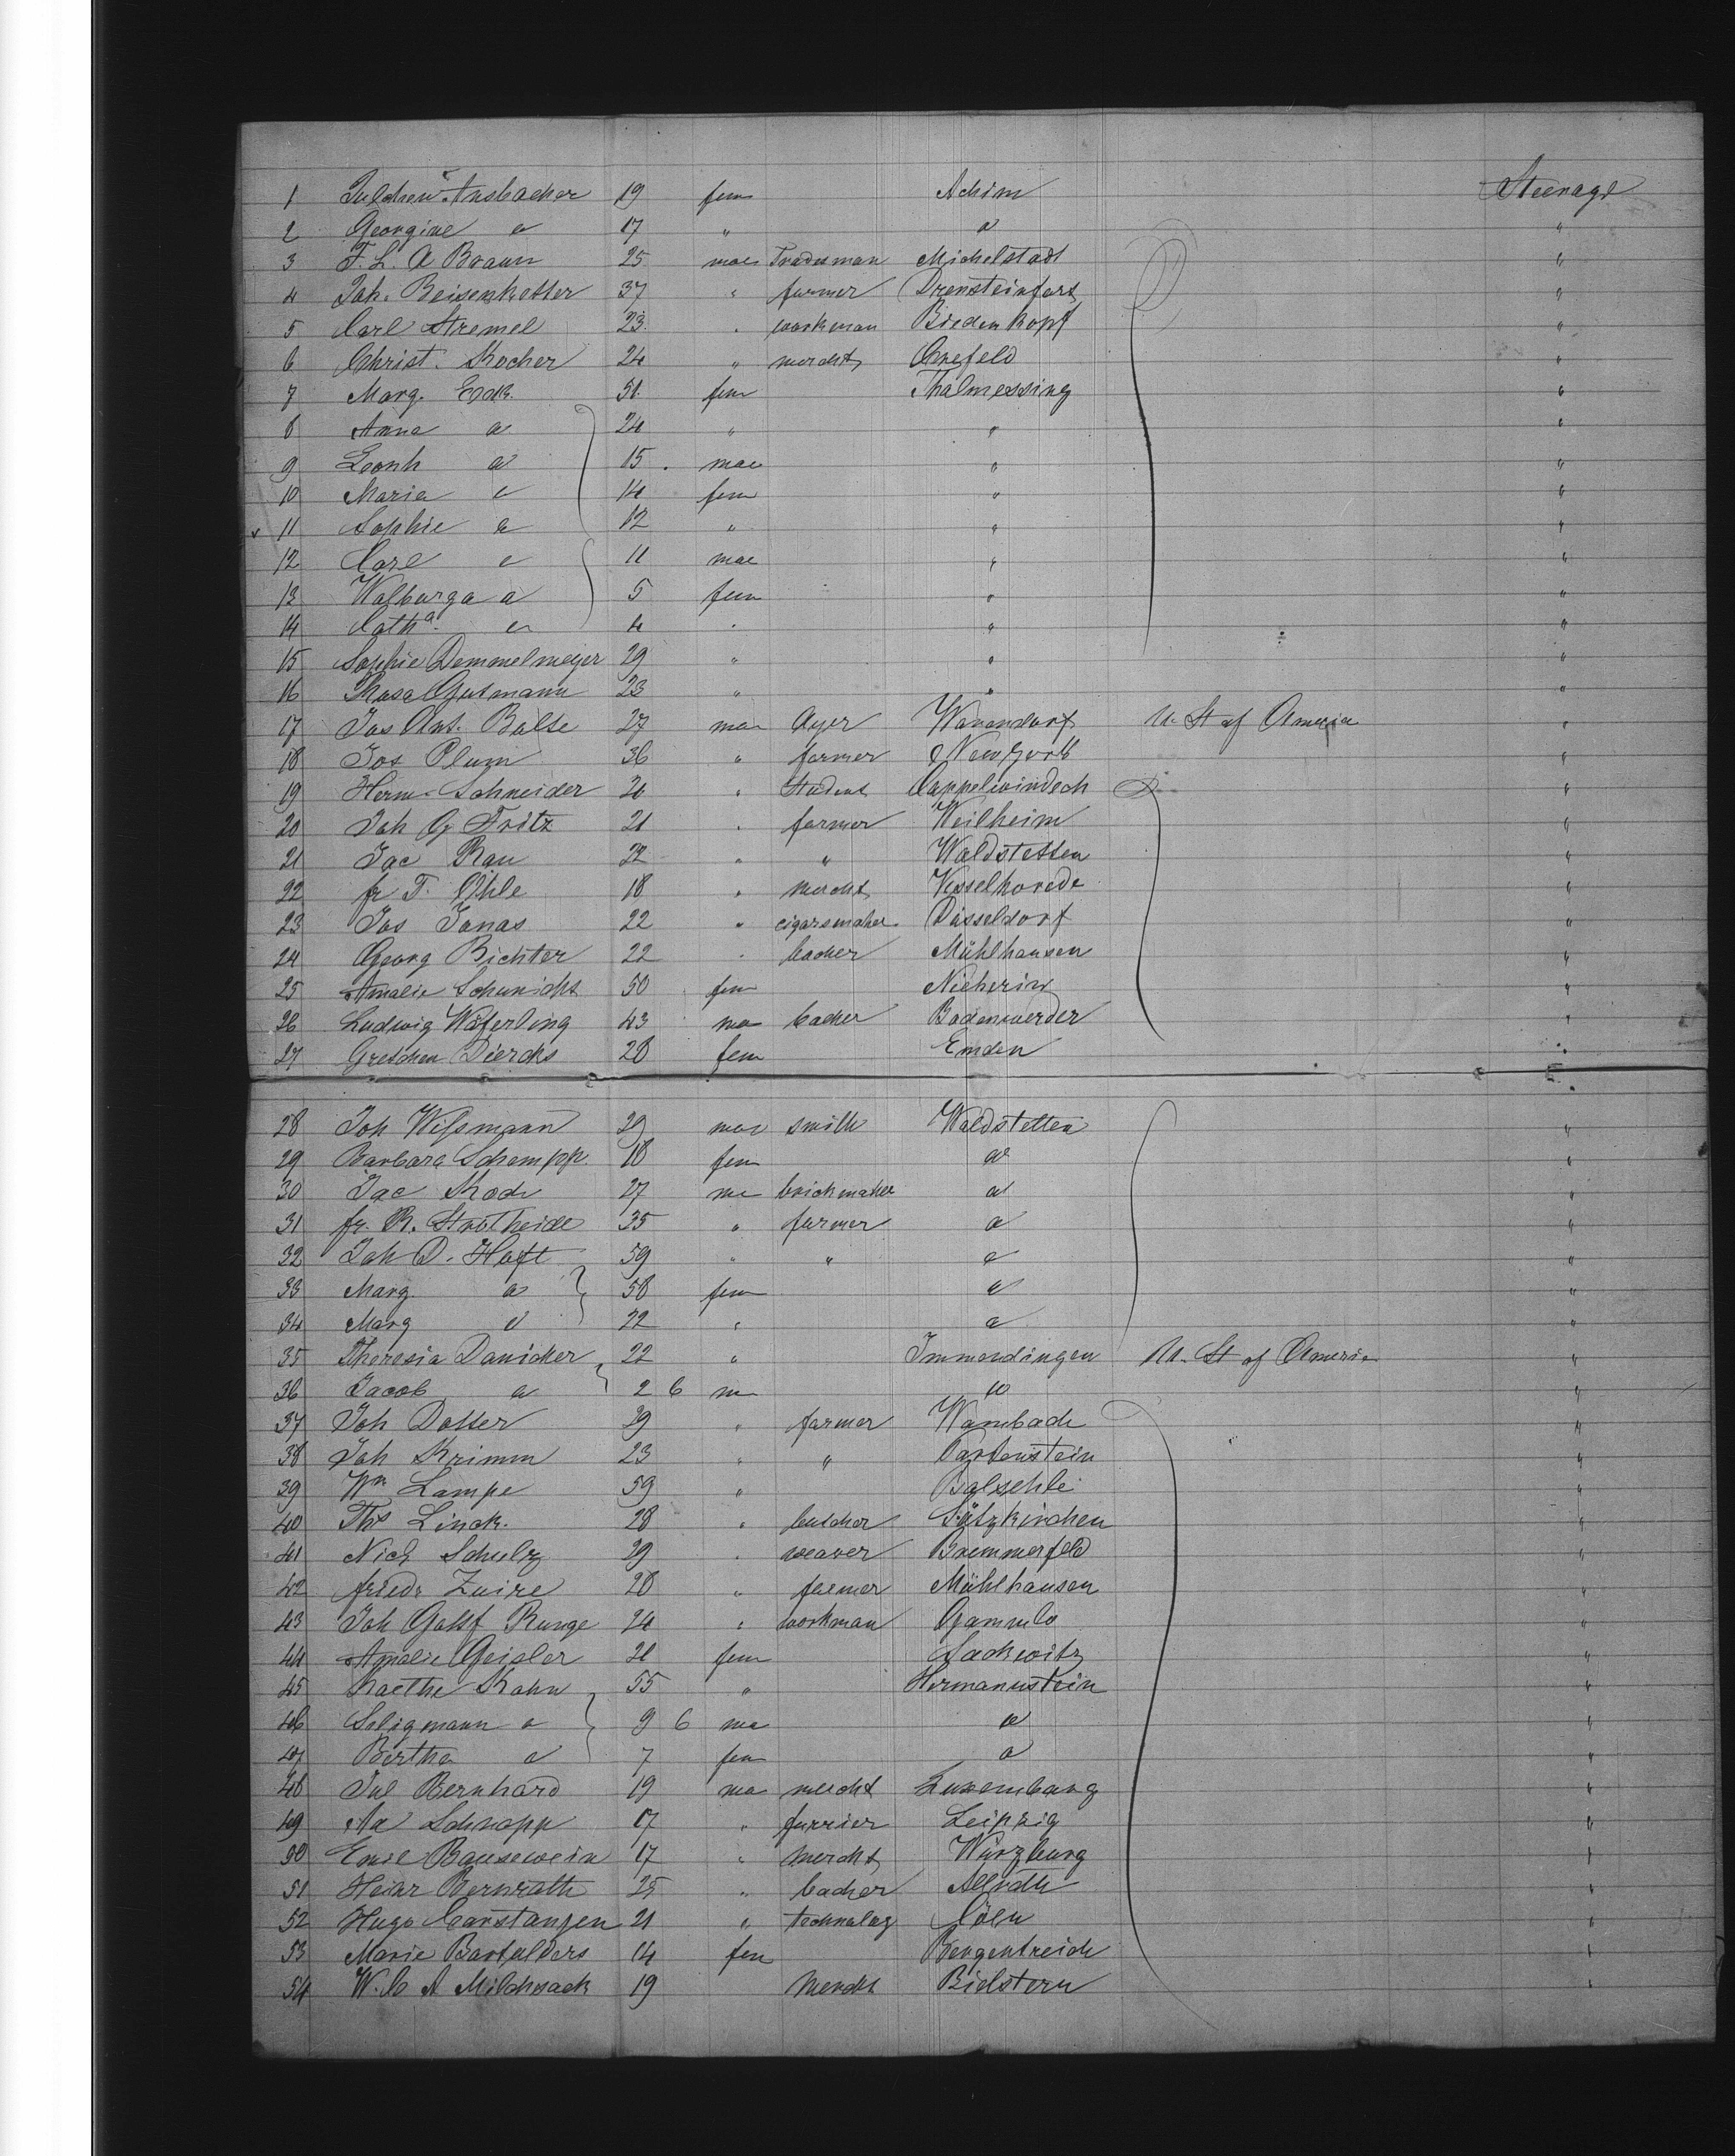 1 Julchen Ansbacher 19 fem Achim Steerage
2 Georgine a 17 " a "
3 F. L. A Braun 25 mae Tradesman Michelstadt "
4 Joh. Beisenkötter 37 " farmer Drensteinfurt "
5 Carl Stremel 23 " workman Biedenkopf "
6 Christ. Kocher 24 " mercht Crefeld "
7 Marg. Eck 51 fem Thalmessing "
8 Anna a 24 " " "
9 Leonh a 15 mae " "
10 Maria a 14 fem " "
11 Sophie a 12 " " "
12 Carl a 11 mae " "
13 Walburga a 5 fem " "
14 Catha a 4 " " "
15 Sophie Demmelmeyer 29 " " "
16 Rosa Gutmann 23 " " "
17 Jos Ant. Bolte 27 mae Warendorf U. St of America "
18 Jos Plum 36 " farmer New York "
19 Herm. Schneider 20 " Student Cappelwindech "
20 Joh G Fritz 21 " farmer Weilheim "
21 Jac Rau 22 " " Waldstetten "
22 fr T. Ohle 18 " mercht Visselhovede "
23 Jos Jonas 22 " cigarsmaker Düsseldorf "
24 Georg Richter 22 " backer Mühlhausen "
25 Amalie Schunicht 50 fem "
26 Ludwig Waferling 43 ma backer Bodenwerder "
27 Gretchen Diercks 28 fem Emden "
28 Joh Wissmann 29 mae smith Waldstetten "
29 Barbara Schempp 18 fem a "
30 Jac Koch 27 ma brickmaker a "
31 fr. R. Strotheide 35 " farmer a "
32 Joh D. Haft 59 " " a "
33 Marg. a 58 fem a "
34 Marg a 22 " a "
35 Theresia Danicker 22 " Immendingen U. St of America "
36 Jacob a 2 6 m a "
37 Joh Dotter 29 " farmer Wambach "
38 Joh Krimm 23 " " Partenstein "
39 Wm Lampe 59 " "
40 Ths Linck. 28 " butcher Sülzkirchen "
41 Nich Schulz 29 " weaver Bremmerfeld "
42 friedr Zuire 28 " farmer Mühlhausen "
43 Joh Gottf Runge 24 " workman "
44 Amalie Geisler 21 fem Sackwitz "
45 Kaethe Kahn 55 " Hermannstein "
46 Seligmann a 9 6 ma a "
47 Bertha a 7 fem a "
48 Jul Bernhard 19 ma mercht Luxemburg "
49 Aa Schnapp 17 " furrier Leipzig "
50 Emil Bausewein 17 " mercht Würzburg "
51 Heinr Bernrath 25 " backer "
52 Hugo Carstanjen 21 " technolog Cöln "
53 Marie Bartelders 14 fem "
54 W. C A Milchsack 19 mercht Bielstern "